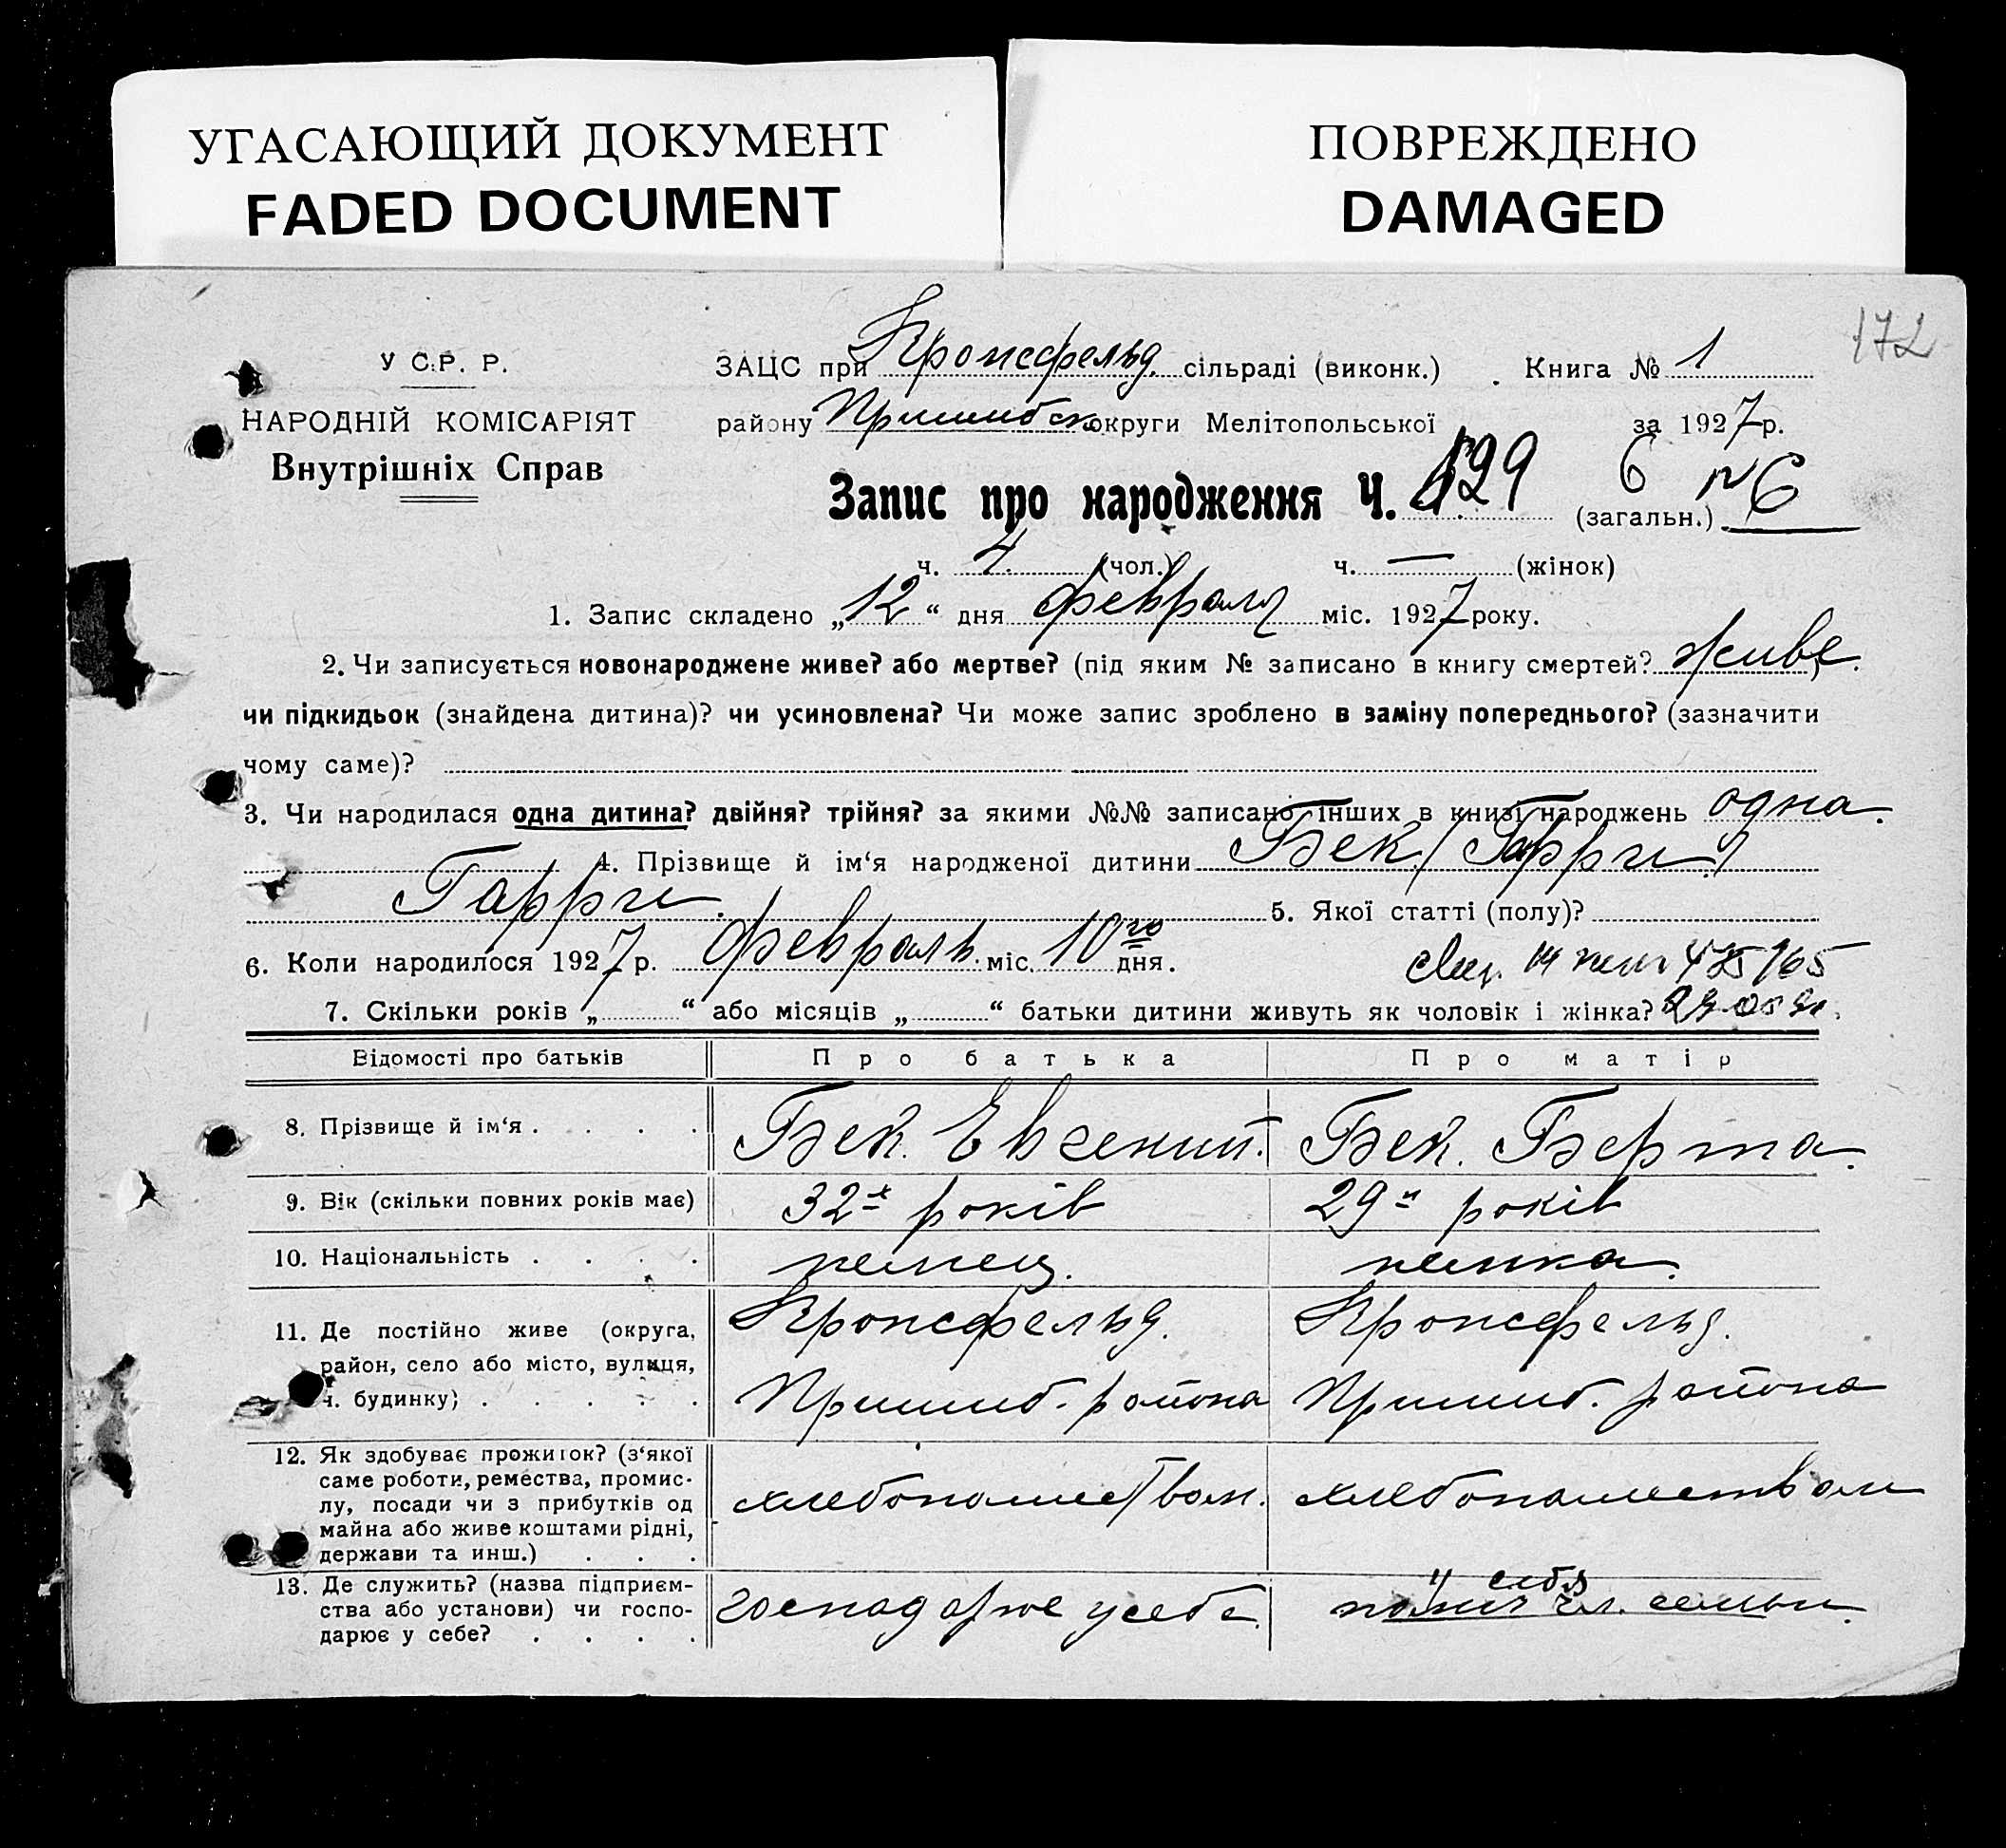 УГАСАЮЩИЙ ДОКУМЕНТ
FADED DOCUMENT
ПОВРЕЖДЕНО
DAMAGED
172
У С.Р. Р.
НАРОДНІЙ КОМІСАРІЯТ
Внутрішніх Справ
ЗАЦС при Кронсфельд. сільраді (виконк.) Книга № 1
району Пришибск. округи Мелітопольської за 1927 р.
Запис про народження Ч. 129 6 (загальн.) № 6
ч. 4 (чол.) ч. — (жінок)
1. Запис складено „12“ дня февраля міс. 1927 року.
2. Чи записується новонароджене живе? або мертве? (під яким № записано в книгу смертей? живе.)
чи підкидьок (знайдена дитина)? чи усиновлена? Чи може запис зроблено в заміну попереднього? (зазначити
чому саме)?
3. Чи народилася одна дитина? двійня? трійня? за якими №№ записано інших в книзі народжень одна.
4. Прізвище й ім‘я народженої дитини Бек (Гарри)
Гарри. 5. Якої статті (полу)?
6. Коли народилося 1927 р. февраль. міс. 10го дня.
7. Скільки років „ “ або місяців „ “ батьки дитини живуть як чоловік і жінка?
Відомості про батьків Про батька Про матір
8. Прізвище й ім‘я . . . . Бек. Евгений. Бек. Берта.
9. Вік (скільки повних років має) 32х років 29и років
10. Національність . . . . немец. немка.
11. Де постійно живе (округа, район, село або місто, вулиця, ч. будинку) . . . . . Кронсфельд. Кронсфельд.
Пришиб. района Пришиб. района
12. Як здобуває прожиток? (з‘якої
саме роботи, ремества, промис-
лу, посади чи з прибутків од
майна або живе коштами рідні,
держави та инш.) . . . хлебопашеством. хлебопашеством
13. Де служить? (назва підприєм-
ства або установи) чи госпо-
дарює у себе? . . . . господарює у себе. у себя
чл. семьи.